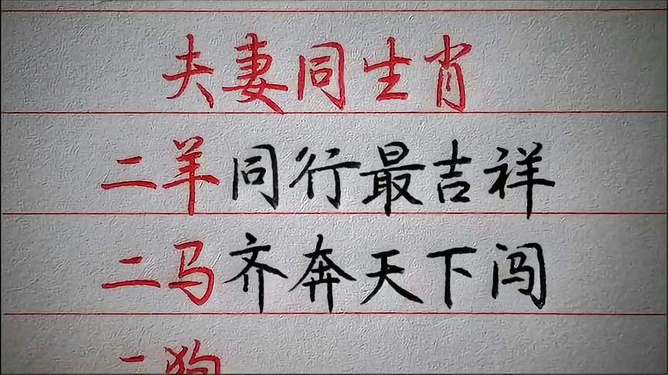 夫妻同生肖
二羊同行最吉祥
二马齐奔天下闯
二狗